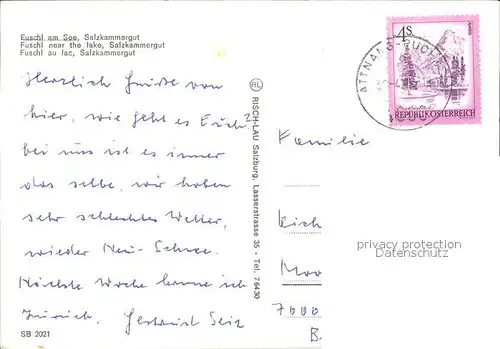 Fuschl am See, Salzkammergut
Fuschl near the lake, Salzkammergut
Fuschl au lac, Salzkammergut
Herzlich Grüße von
hier, wie geht es Euch?
bei uns ist es immer
das selbe, wir haben
sehr schlechtes Wetter,
wieder Neu-Schnee.
Nächste Woche komme ich
Zürich.
SB 2021
RL RISCH-LAU Salzburg, Lasserstrasse 35 - Tel. 76430
4S
REPUBLIK ÖSTERREICH
ATTNANG-PUCH
Familie
Kich
Moo
7000
B
privacy protection
Datenschutz